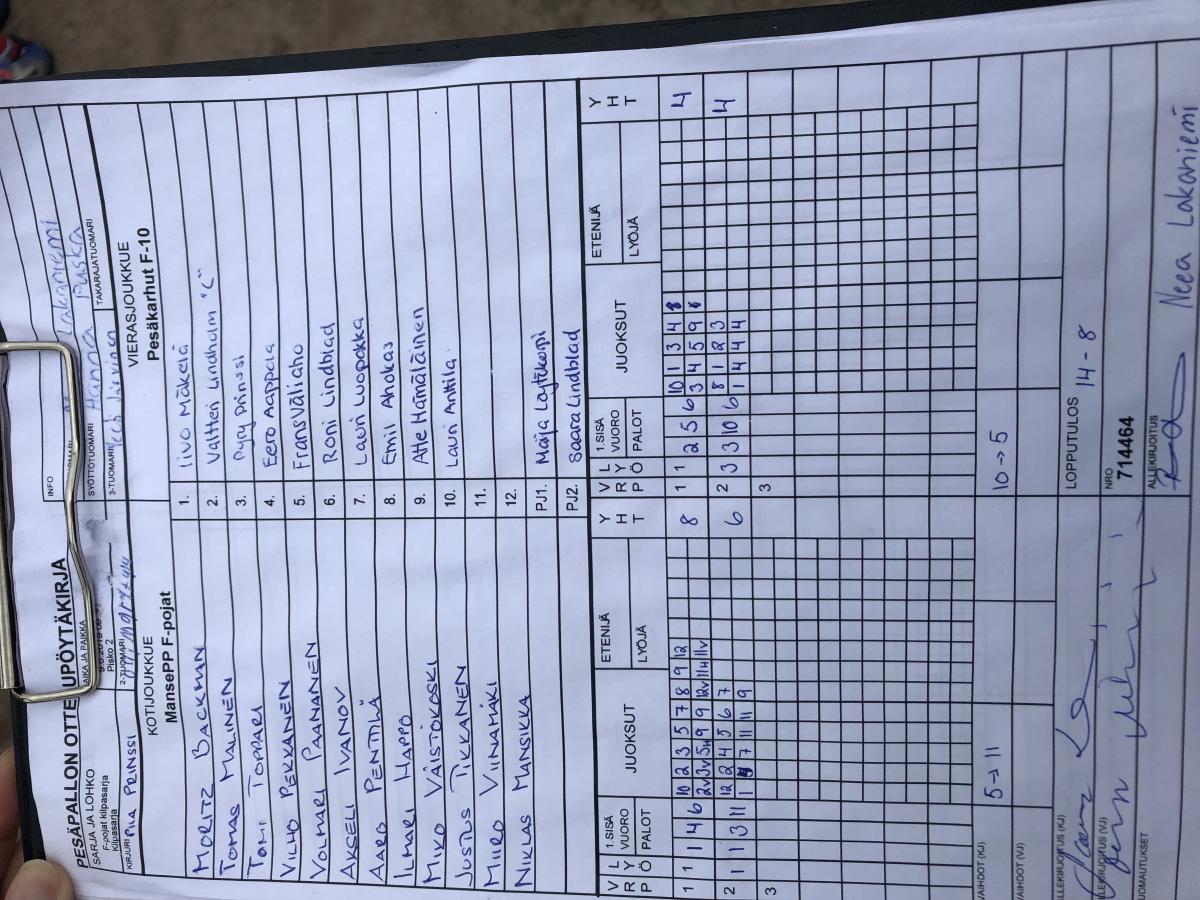 PESÄPALLON OTTELUPÖYTÄKIRJA
SARJA JA LOHKO
F-pojat kilpasarja
Kilpasarja
AIKA JA PAIKKA
Pisko 2
INFO
KIRJURI PIIA PRINSSI
2-TUOMARI
SYÖTTÖTUOMARI Hanna Lakaniemi
3-TUOMARI
TAKARAJATUOMARI Puska
KOTIJOUKKUE
VIERASJOUKKUE
MansePP F-pojat
Pesäkarhut F-10
MORITZ BACKMAN 1. Iivo Mäkelä
TOMAS MALINEN 2. Valtteri Lindholm "C"
TOMI TOPPARI 3. Pyry Prinssi
VILHO PEKKANEN 4. Eero Aappala
VOLMARI PAANANEN 5. Frans Väliaho
AKSELI IVANOV 6. Roni Lindblad
AARO PENTTILÄ 7. Lauri Luopakka
ILMARI HAPPO 8. Emil Ahokas
MIKO VÄISTÖKOSKI 9. Atte Hämäläinen
JUSTUS TIKKANEN 10. Lauri Anttila
MIIRO VIINAMÄKI 11.
NIKLAS MANSIKKA 12.
PJ1. Maija Löytökorpi
PJ2. Saara Lindblad
V R P L Y Ö 1.SISÄ VUORO PALOT JUOKSUT ETENIJÄ LYÖJÄ Y H T V R P L Y Ö 1.SISÄ VUORO PALOT JUOKSUT ETENIJÄ LYÖJÄ Y H T
1 1 1 4 6 10 2 3 5 7 8 9 12 8 1 1 2 5 6 10 1 3 4 4
2v 3v 5H 9 9 12v 11H 11v 3 4 5 9
2 1 1 3 11 12 2 4 5 6 7 6 2 3 3 10 6 8 1 2 3 4
1 7 11 11 9 1 4 4 4
3 3
VAIHDOT (KJ) 5→11 10→5
VAIHDOT (VJ)
ALLEKIRJOITUS (KJ) LOPPUTULOS 14-8
ALLEKIRJOITUS (VJ) NRO
714464
HUOMAUTUKSET ALLEKIRJOITUS
Neea Lakaniemi